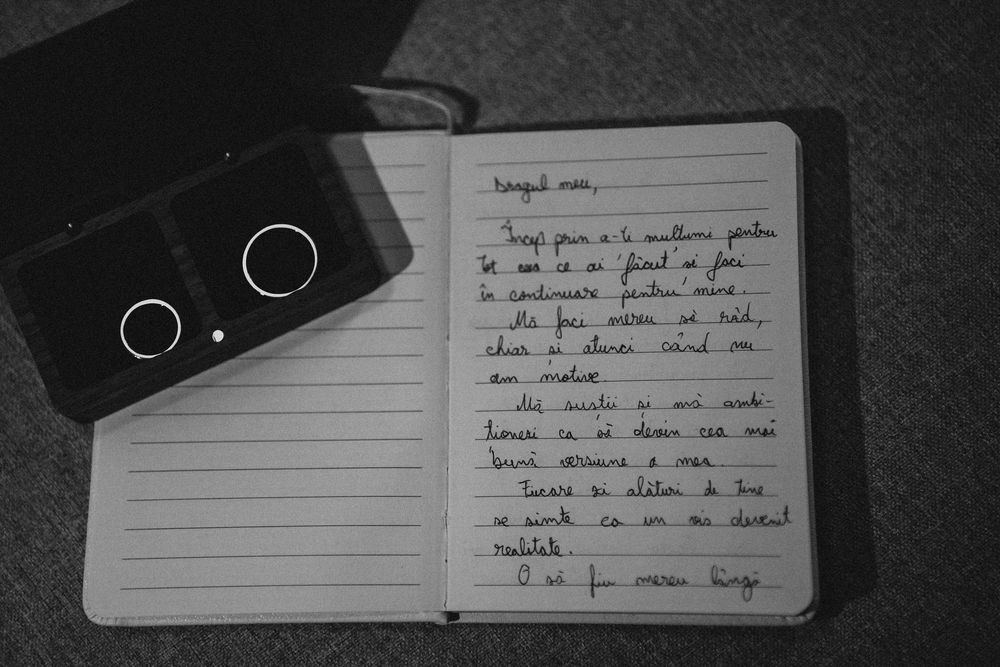 Dragul meu,
Încep prin a-ți mulțumi pentru
tot ceea ce ai făcut și faci
în continuare pentru mine.
Mă faci mereu să râd,
chiar și atunci când nu
am motive.
Mă susții și mă ambi-
ționezi ca să devin cea mai
bună versiune a mea.
Fiecare zi alături de tine
se simte ca un vis devenit
realitate.
O să fiu mereu lângă